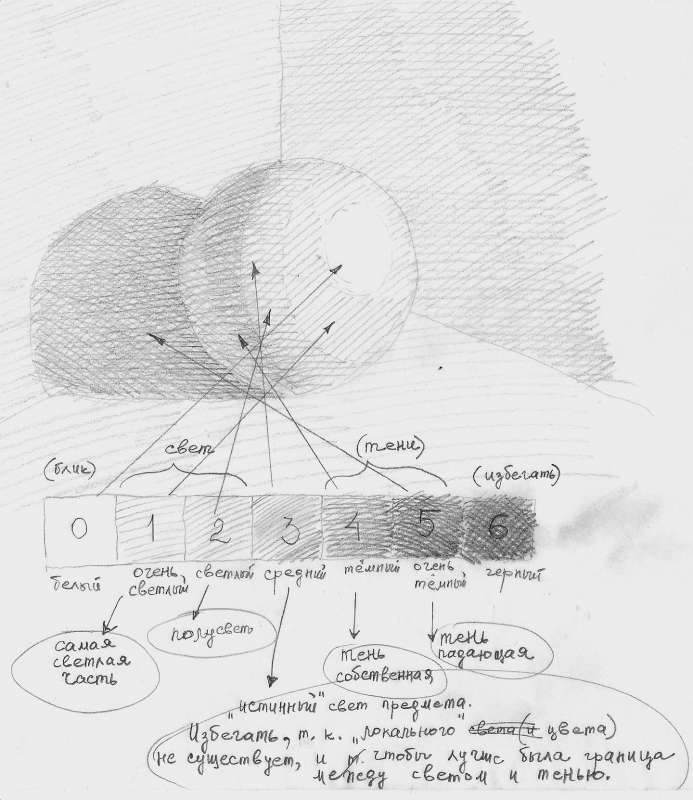 свет
(тени)
(блик)
(избегать)
0 1 2 3 4 5 6
белый очень светлый светлый средний тёмный очень тёмный черный
самая
светлая
часть
полусвет
тень
собственная
тень
падающая
"истинный" свет предмета.
Избегать, т.к. "локального" света (и цвета)
не существует, и п. чтобы лучше была граница
между светом и тенью.